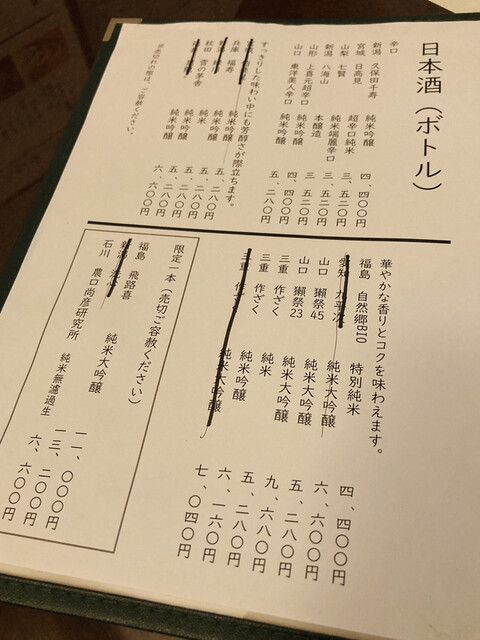 日本酒（ボトル）
辛口
新潟 久保田千寿 純米吟醸 四、四〇〇円
宮城 日高見 超辛口純米 三、五二〇円
山梨 七賢 純米端麗辛口 三、五二〇円
新潟 八海山 本醸造 三、五二〇円
山形 上喜元超辛口 純米吟醸 四、四〇〇円
山口 東洋美人辛口 純米吟醸 五、二八〇円
すっきりした味わい中にも芳醇さが際立ちます。
純米吟醸 五、二八〇円
兵庫 福寿 純米吟醸 五、二八〇円
純米吟醸 五、二八〇円
秋田 雪の茅舎 純米 五、二八〇円
純米吟醸 六、六〇〇円
※売切れの際は、ご容赦ください。
華やかな香りとコクを味わえます。
福島 自然郷BIO 特別純米 四、四〇〇円
愛知 九平次 純米大吟醸 六、六〇〇円
山口 獺祭45 純米大吟醸 五、二八〇円
山口 獺祭23 純米大吟醸 九、六八〇円
三重 作ざく 純米 五、二八〇円
三重 作ざく 純米吟醸 六、一六〇円
三重 作ざく 純米大吟醸 七、〇四〇円
限定一本（売切ご容赦ください）
福島 飛路喜 純米大吟醸 一一、〇〇〇円
新潟 洗心 一三、二〇〇円
石川 農口尚彦研究所 純米無濾過生 六、六〇〇円